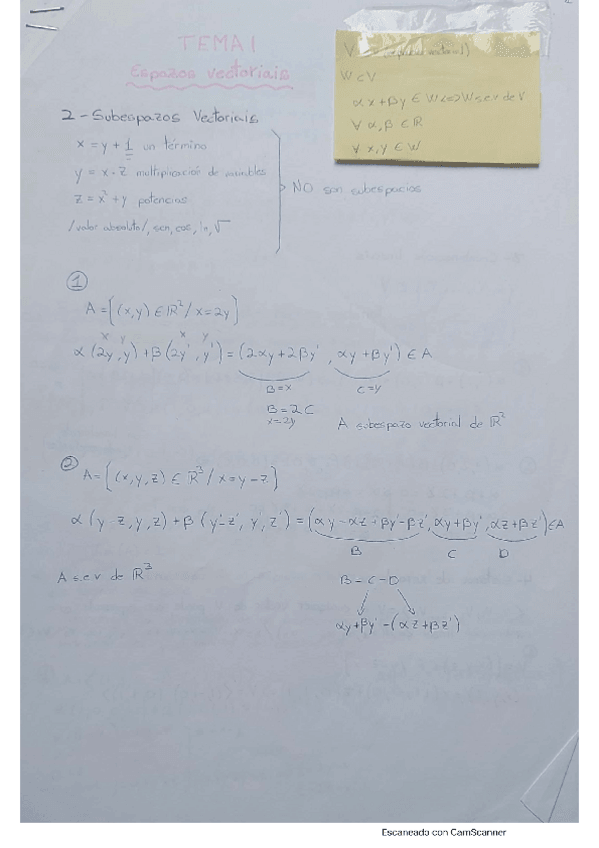 TEMA 1
Espazos vectoriais
V (espazo vectorial)
W ⊂ V
αx + βy ∈ W <=> W s.e.v de V
∀ α, β ∈ ℝ
∀ x, y ∈ W
2 - Subespazos Vectoriais
x = y + 1 un término
y = x · z multiplicación de variables
z = x² + y potencias
/valor absoluto/, sen, cos, ln, √
NO son subespacios
①
A = {(x,y) ∈ ℝ² / x = 2y}
x y x y
α(2y, y) + β(2y', y') = (2αy + 2βy', αy + βy') ∈ A
B = x C = y
B = 2C
x = 2y
A subespazo vectorial de ℝ²
②
A = {(x,y,z) ∈ ℝ³ / x = y - z}
α(y - z, y, z) + β(y' - z', y', z') = (αy - αz + βy' - βz', αy + βy', αz + βz') ∈ A
B C D
A s.e.v de ℝ³
B = C - D
αy + βy' - (αz + βz')
Escaneado con CamScanner